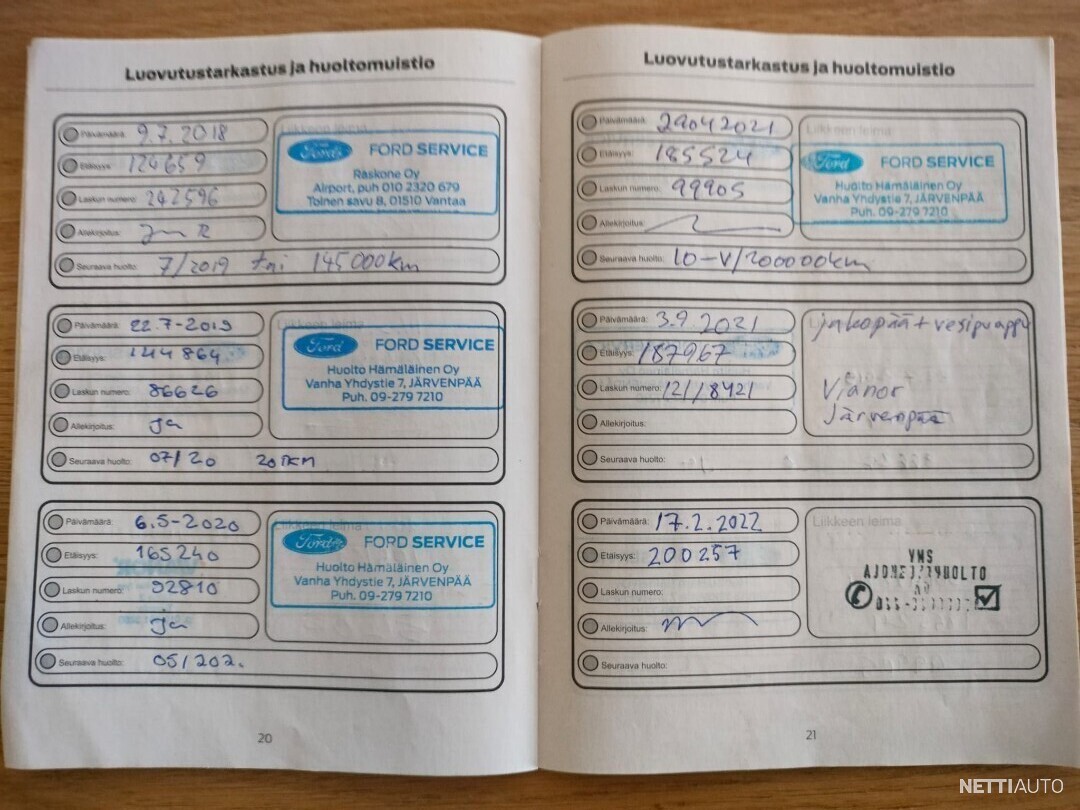 Luovutustarkastus ja huoltomuistio
Päivämäärä: 9.7.2018
Etäisyys: 124659
Laskun numero: 242596
Allekirjoitus:
Seuraava huolto: 7/2019 tai 145000km
Liikkeen leima
Ford FORD SERVICE
Raskone Oy
Airport, puh 010 2320 679
Toinen savu 8, 01510 Vantaa
Päivämäärä: 22.7-2019
Etäisyys: 144864
Laskun numero: 86626
Allekirjoitus:
Seuraava huolto: 07/20 20TKM
Liikkeen leima
Ford FORD SERVICE
Huolto Hämäläinen Oy
Vanha Yhdystie 7, JÄRVENPÄÄ
Puh. 09-279 7210
Päivämäärä: 6.5-2020
Etäisyys: 165240
Laskun numero: 92810
Allekirjoitus:
Seuraava huolto: 05/202.
Liikkeen leima
Ford FORD SERVICE
Huolto Hämäläinen Oy
Vanha Yhdystie 7, JÄRVENPÄÄ
Puh. 09-279 7210
20
Luovutustarkastus ja huoltomuistio
Päivämäärä: 29042021
Etäisyys: 185524
Laskun numero: 99905
Allekirjoitus:
Seuraava huolto: 10-V/200000km
Liikkeen leima
Ford FORD SERVICE
Huolto Hämäläinen Oy
Vanha Yhdystie 7, JÄRVENPÄÄ
Puh. 09-279 7210
Päivämäärä: 3.9.2021
Etäisyys: 187967
Laskun numero: 12118421
Allekirjoitus:
Seuraava huolto:
jakopää + vesipumppu
Vianor
Järvenpää
Päivämäärä: 17.2.2022
Etäisyys: 200257
Laskun numero:
Allekirjoitus:
Seuraava huolto:
Liikkeen leima
VMS
21
NETTIAUTO